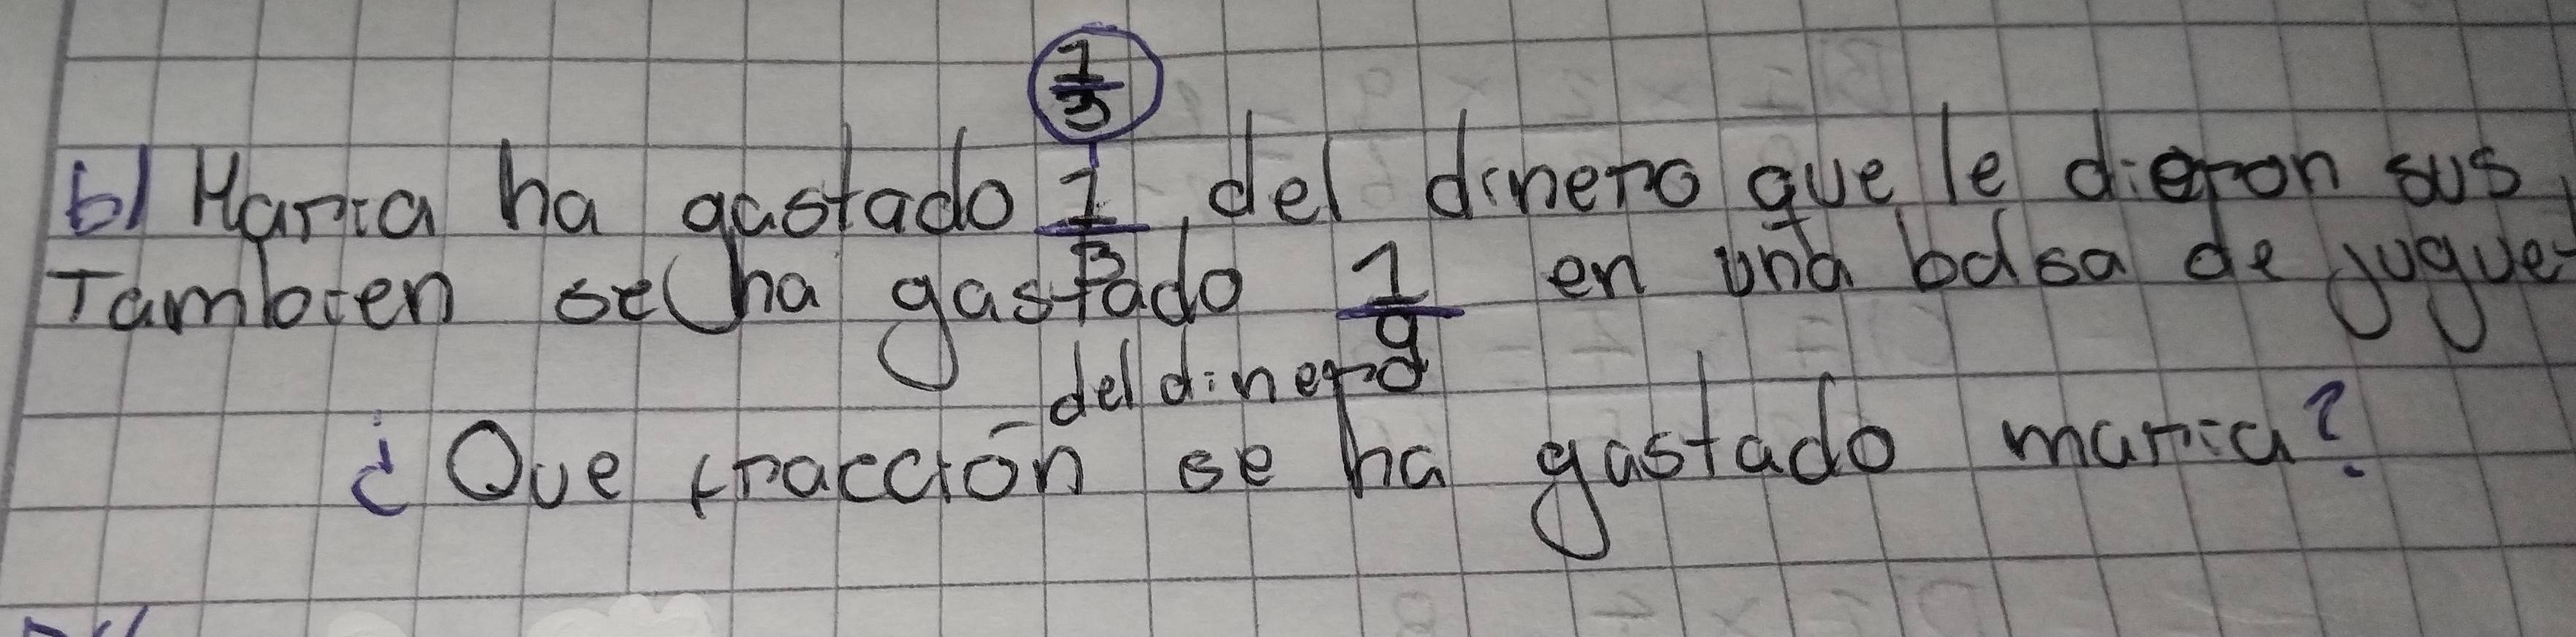 1/3
b) Maria ha gastado 1/3 del dinero que le dieron sus
Tambien se ha gastado 1/9 en una bolsa de jugue-
del dinero
¿Que fracción se ha gastado maria?